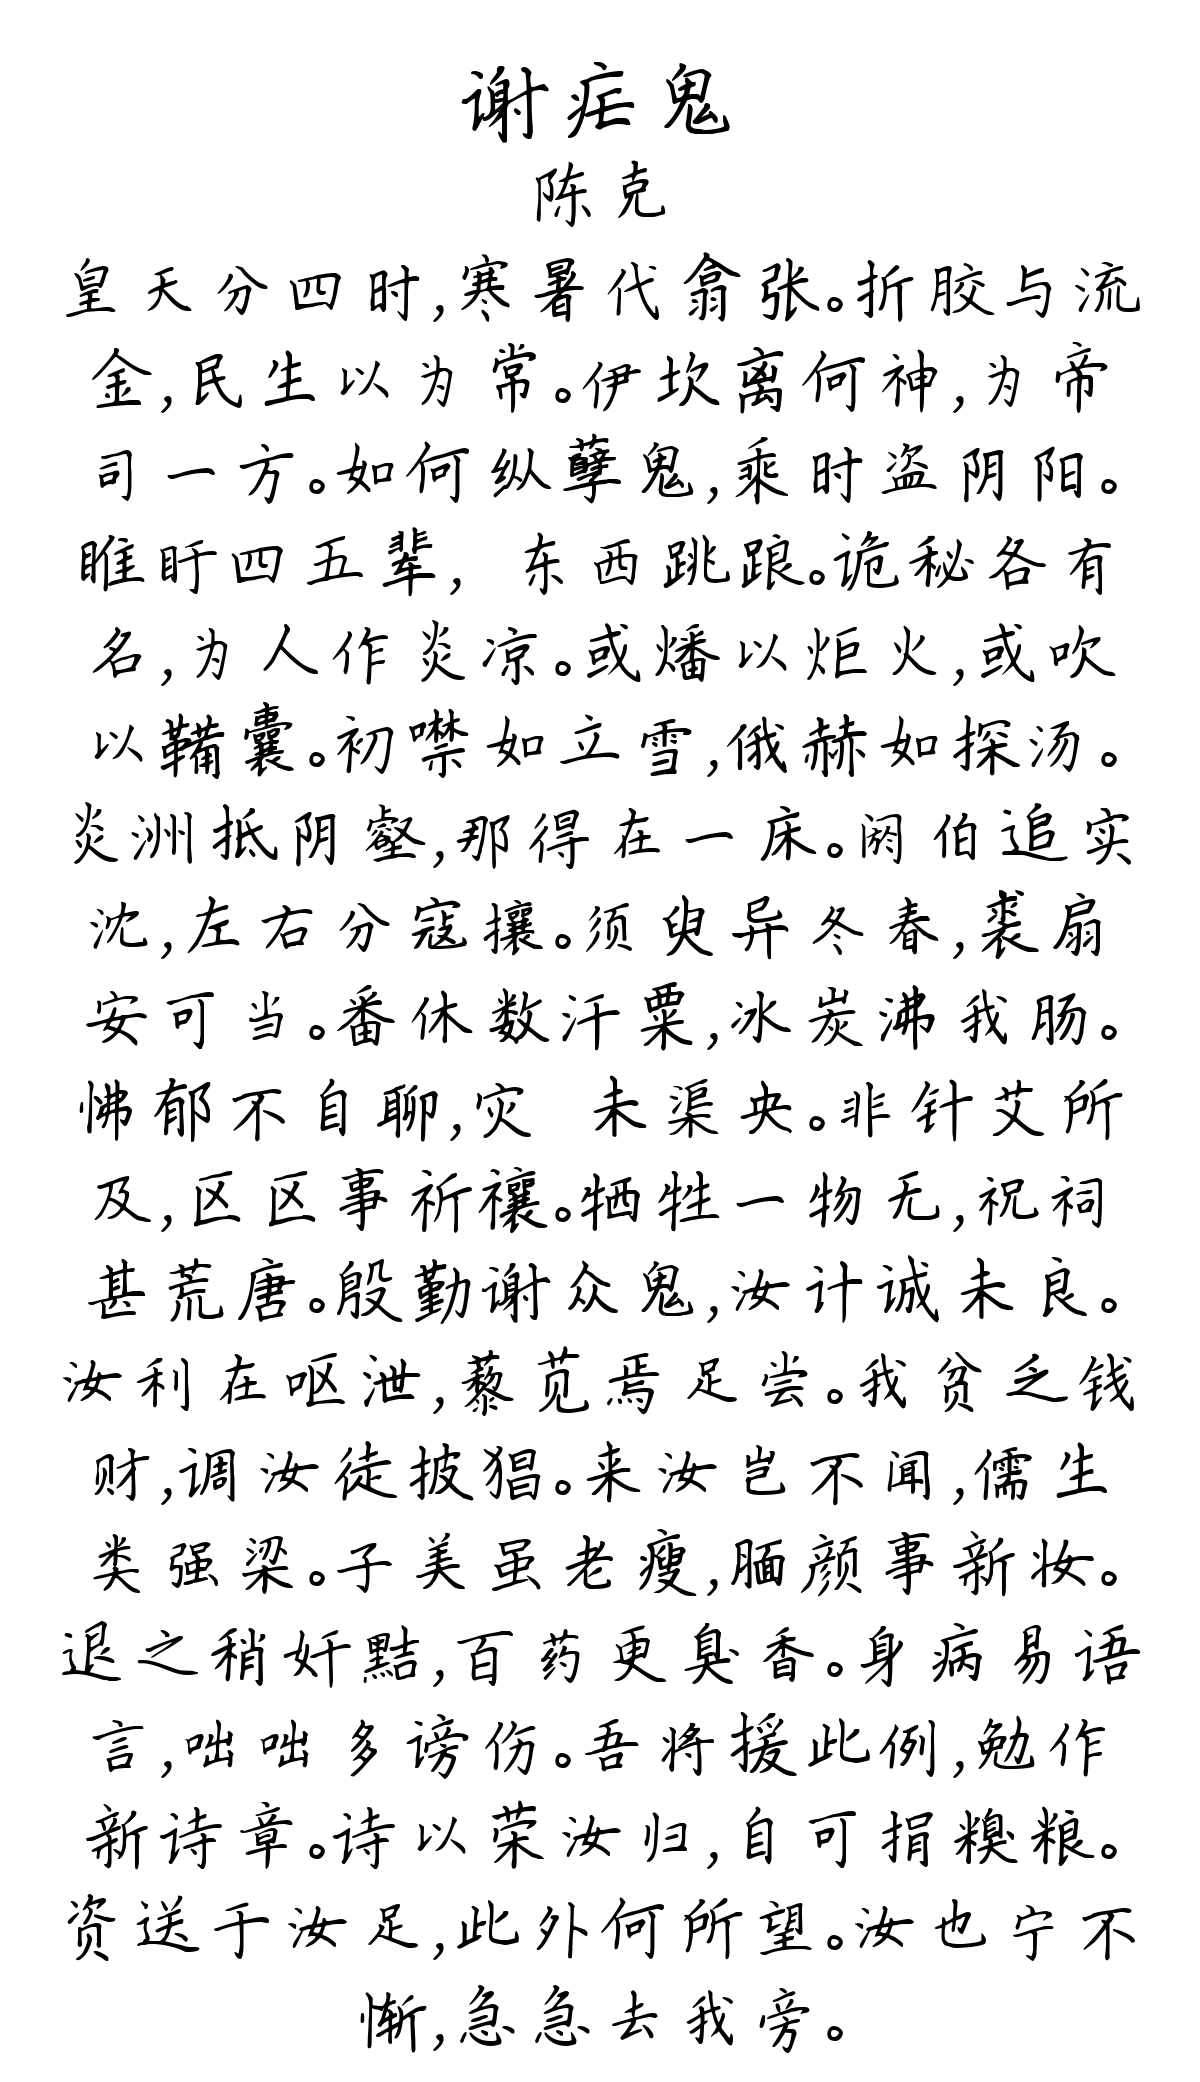 谢疟鬼
陈克
皇天分四时,寒暑代翕张。折胶与流
金,民生以为常。伊坎离何神,为帝
司一方。如何纵孽鬼,乘时盗阴阳。
睢盱四五辈, 东西跳踉。诡秘各有
名,为人作炎凉。或燔以炬火,或吹
以鞴囊。初噤如立雪,俄赫如探汤。
炎洲抵阴壑,那得在一床。阏伯追实
沈,左右分寇攘。须臾异冬春,裘扇
安可当。番休数汗粟,冰炭沸我肠。
怫郁不自聊,灾 未渠央。非针艾所
及,区区事祈禳。牺牲一物无,祝祠
甚荒唐。殷勤谢众鬼,汝计诚未良。
汝利在呕泄,藜苋焉足尝。我贫乏钱
财,调汝徒披猖。来汝岂不闻,儒生
类强梁。子美虽老瘦,腼颜事新妆。
退之稍奸黠,百药更臭香。身病易语
言,咄咄多谤伤。吾将援此例,勉作
新诗章。诗以荣汝归,自可捐糗粮。
资送于汝足,此外何所望。汝也宁不
惭,急急去我旁。